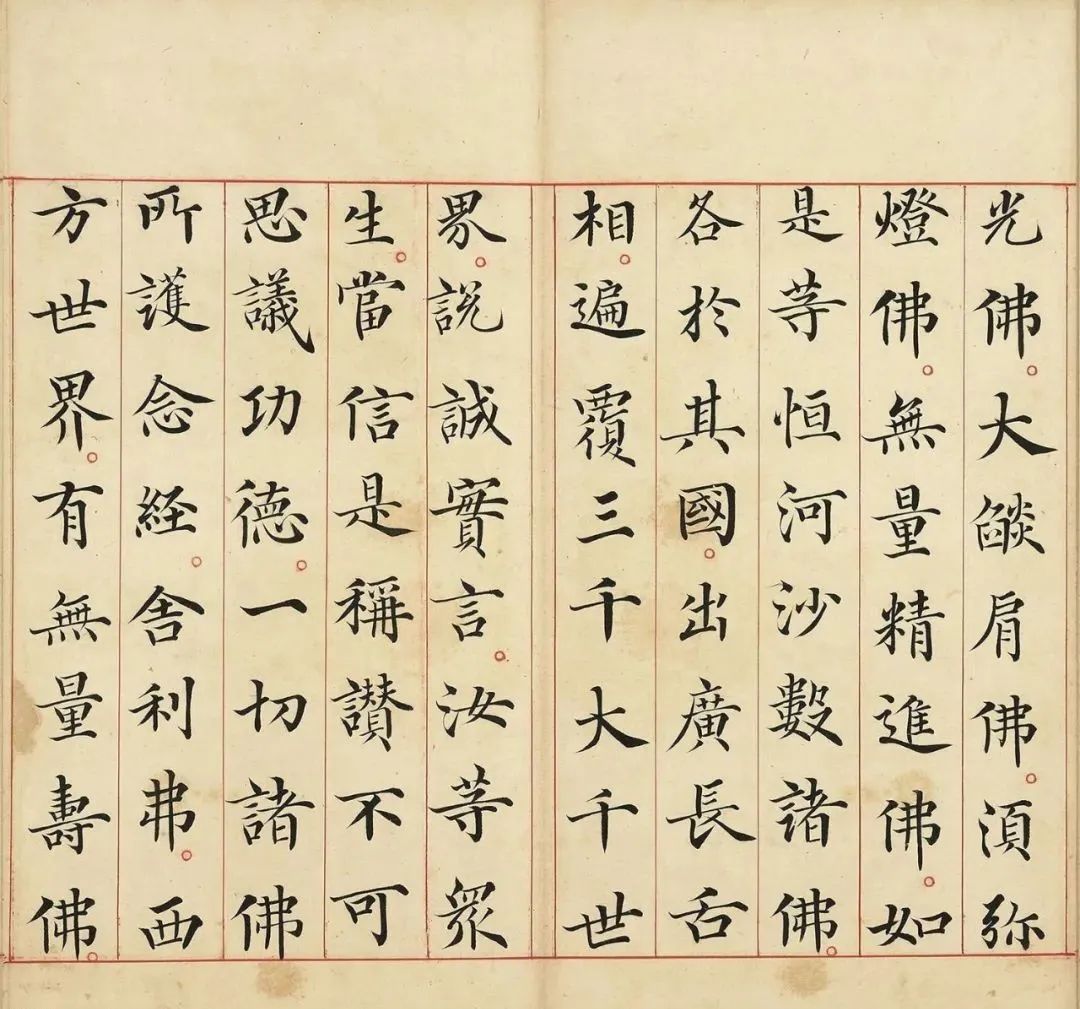 光佛。大燄肩佛。須弥
燈佛。無量精進佛。如
是等恒河沙數諸佛。
各於其國。出廣長舌
相。遍覆三千大千世
界。說誠實言。汝等眾
生。當信是稱讚不可
思議功德。一切諸佛
所護念経。舍利弗。西
方世界。有無量壽佛。